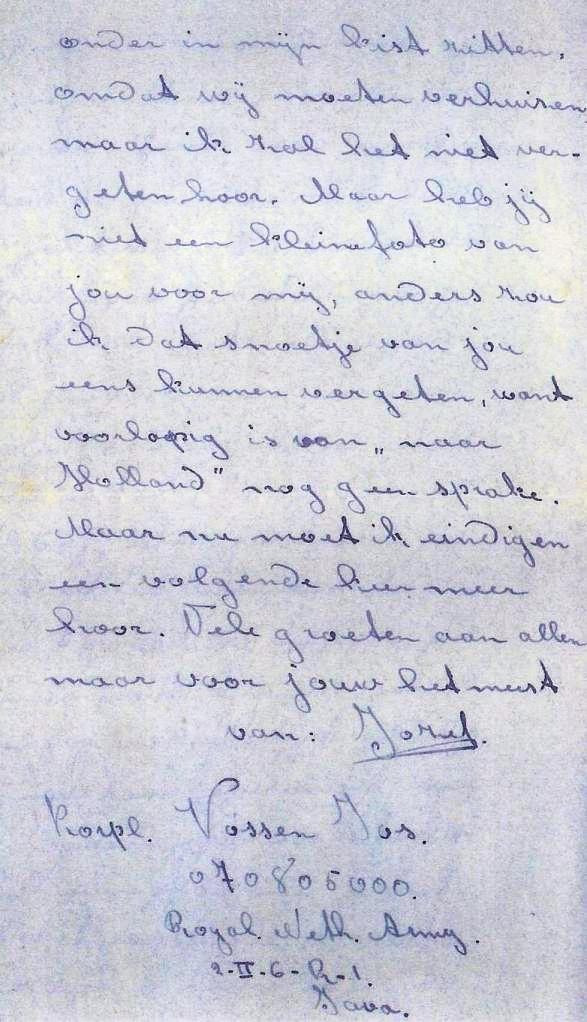 onder in mijn kist zitten,
omdat wij moeten verhuizen
maar ik zal het niet ver-
geten hoor. Maar heb jij
niet een kleine foto van
jou voor mij, anders zou
ik dat snoetje van jou
eens kunnen vergeten, want
voorlopig is van „naar
Holland” nog geen sprake.
Maar nu moet ik eindigen
een volgende keer meer
hoor. Vele groeten aan allen
maar voor jouw het meest
van: Jozef.
Korpl. Vossen Jos.
070805000.
Royal. Neth. Army.
2-II-6-R-1.
Java.